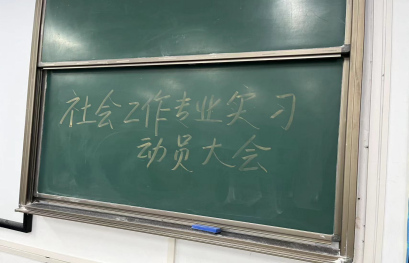 社会工作专业实习
动员大会